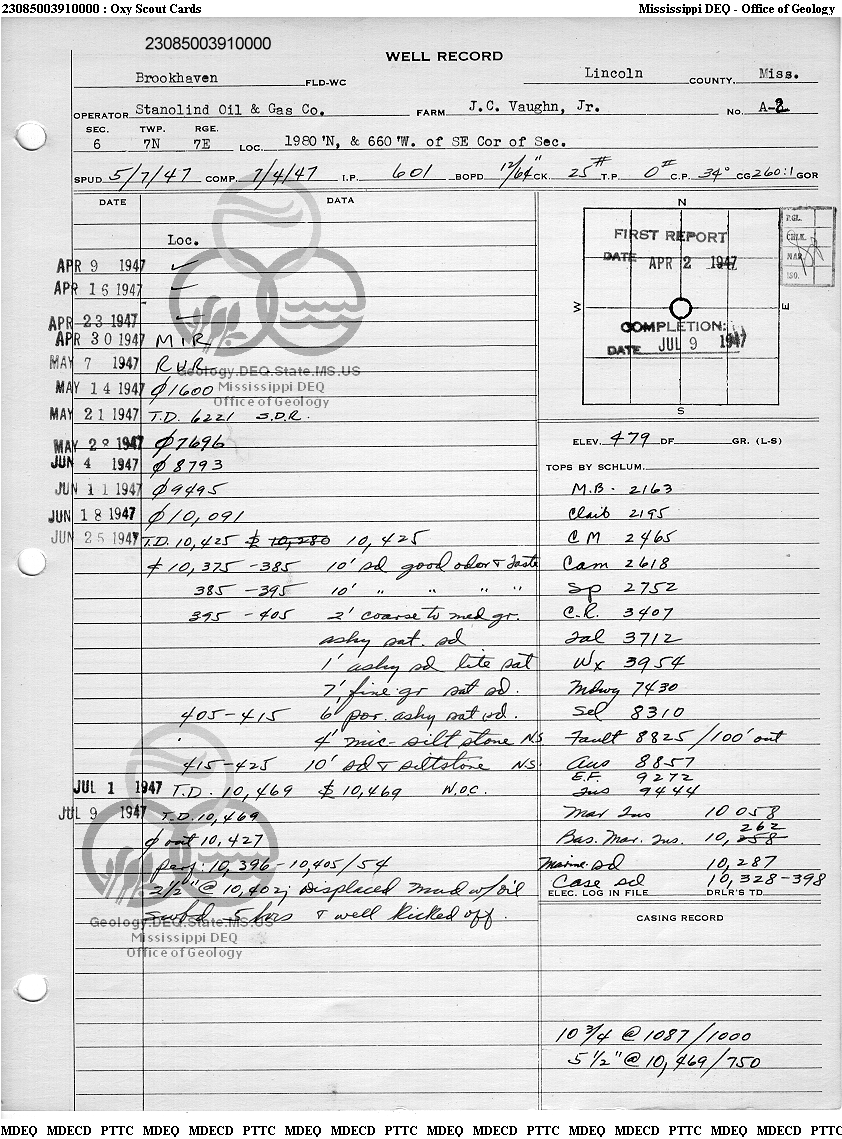 23085003910000 : Oxy Scout Cards Mississippi DEQ - Office of Geology
23085003910000
WELL RECORD
Brookhaven FLD-WC Lincoln COUNTY, Miss.
OPERATOR Stanolind Oil & Gas Co. FARM J.C. Vaughn, Jr. NO. A-2
SEC. TWP. RGE.
6 7N 7E LOC. 1980'N, & 660'W. of SE Cor of Sec.
SPUD 5/7/47 COMP. 7/4/47 I.P. 601 BOPD 12/64" CK. 25# T.P. 0# C.P. 34° CG 260:1 GOR
DATE DATA
Loc.
APR 9 1947 ✓
APR 16 1947 ✓
APR 23 1947 ✓
APR 30 1947 M I R
MAY 7 1947 R U R
MAY 14 1947 ∅ 1600
MAY 21 1947 T.D. 6221 S.D.R.
MAY 28 1947 ∅ 7696
JUN 4 1947 ∅ 8793
JUN 11 1947 ∅ 9495
JUN 18 1947 ∅ 10,091
JUN 25 1947 T.D. 10,425 10,280 10,425
10,375 -385 10' sd good odor & taste
385 -395 10' " " " "
395 -405 2' coarse to med gr.
ashy sat. sd
1' ashy sd lite sat
7' fine gr sat sd.
405-415 6' por. ashy sat sd.
4' mic-siltstone N.S.
415-425 10' sd & siltstone N.S.
JUL 1 1947 T.D. 10,469 $ 10,469 W.O.C.
JUL 9 1947 T.D. 10,469
∅ out 10,427
perf: 10,396-10,405/54
2½" @ 10,402; Displaced mud w/oil
swbd 5 hrs & well kicked off.
Geology.DEQ.State.MS.US
Mississippi DEQ
Office of Geology
Geology.DEQ.State.MS.US
Mississippi DEQ
Office of Geology
N
W
E
S
FIRST REPORT
DATE APR 2 1947
COMPLETION:
DATE JUL 9 1947
P.GL.
CHLK.
MAP
ISO.
ELEV. 479 DF GR. (L-S)
TOPS BY SCHLUM.
M.B. - 2163
Claib 2195
C M 2465
Cam 2618
Sp 2752
C.R. 3407
Tal 3712
Wx 3954
Mdwy 7430
Sel 8310
Fault 8825/100' out
Aus 8857
E.F. 9272
Tus 9444
Mar Tus 10058
Bas. Mar. Tus. 10,258 262
Marine sd 10,287
Case sd 10,328-398
ELEC. LOG IN FILE DRLR'S TD
CASING RECORD
10 3/4 @ 1087/1000
5 1/2" @ 10,469/750
MDEQ MDECD PTTC MDEQ MDECD PTTC MDEQ MDECD PTTC MDEQ MDECD PTTC MDEQ MDECD PTTC MDEQ MDECD PTTC